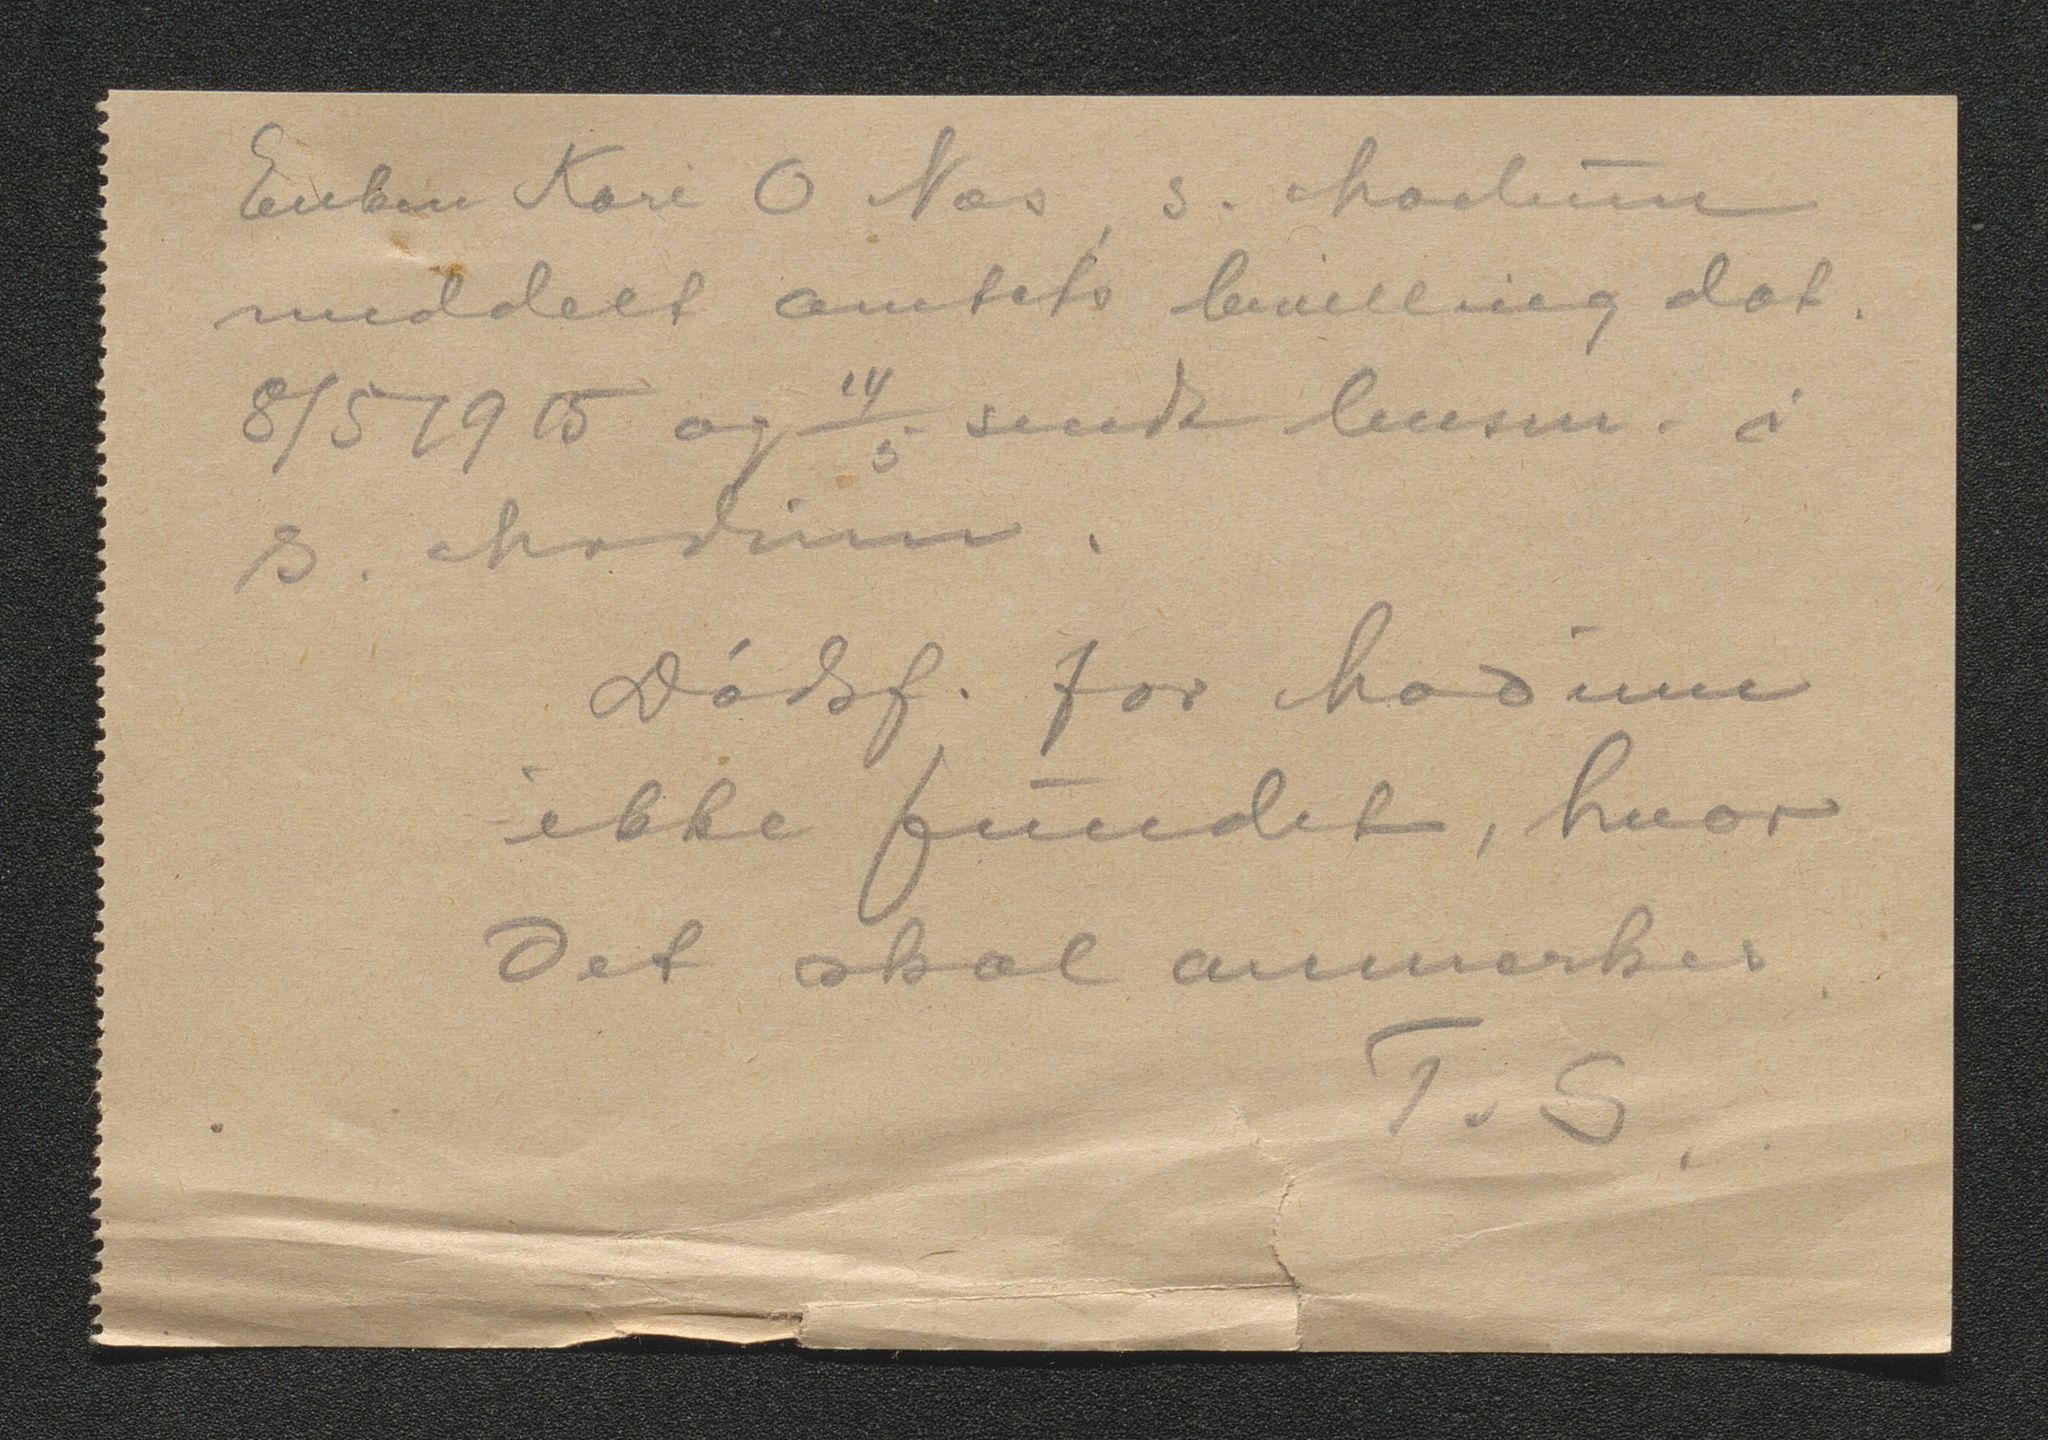 Enken Kari O Næs, s. Modum
meddelt amtets bevilling dat.
8/5 1915 og 14/5 sendt lensm. i
S. Modum.
Dødsf. for Modum
ikke fundet, hvor
Det skal anmerkes.
T. S.